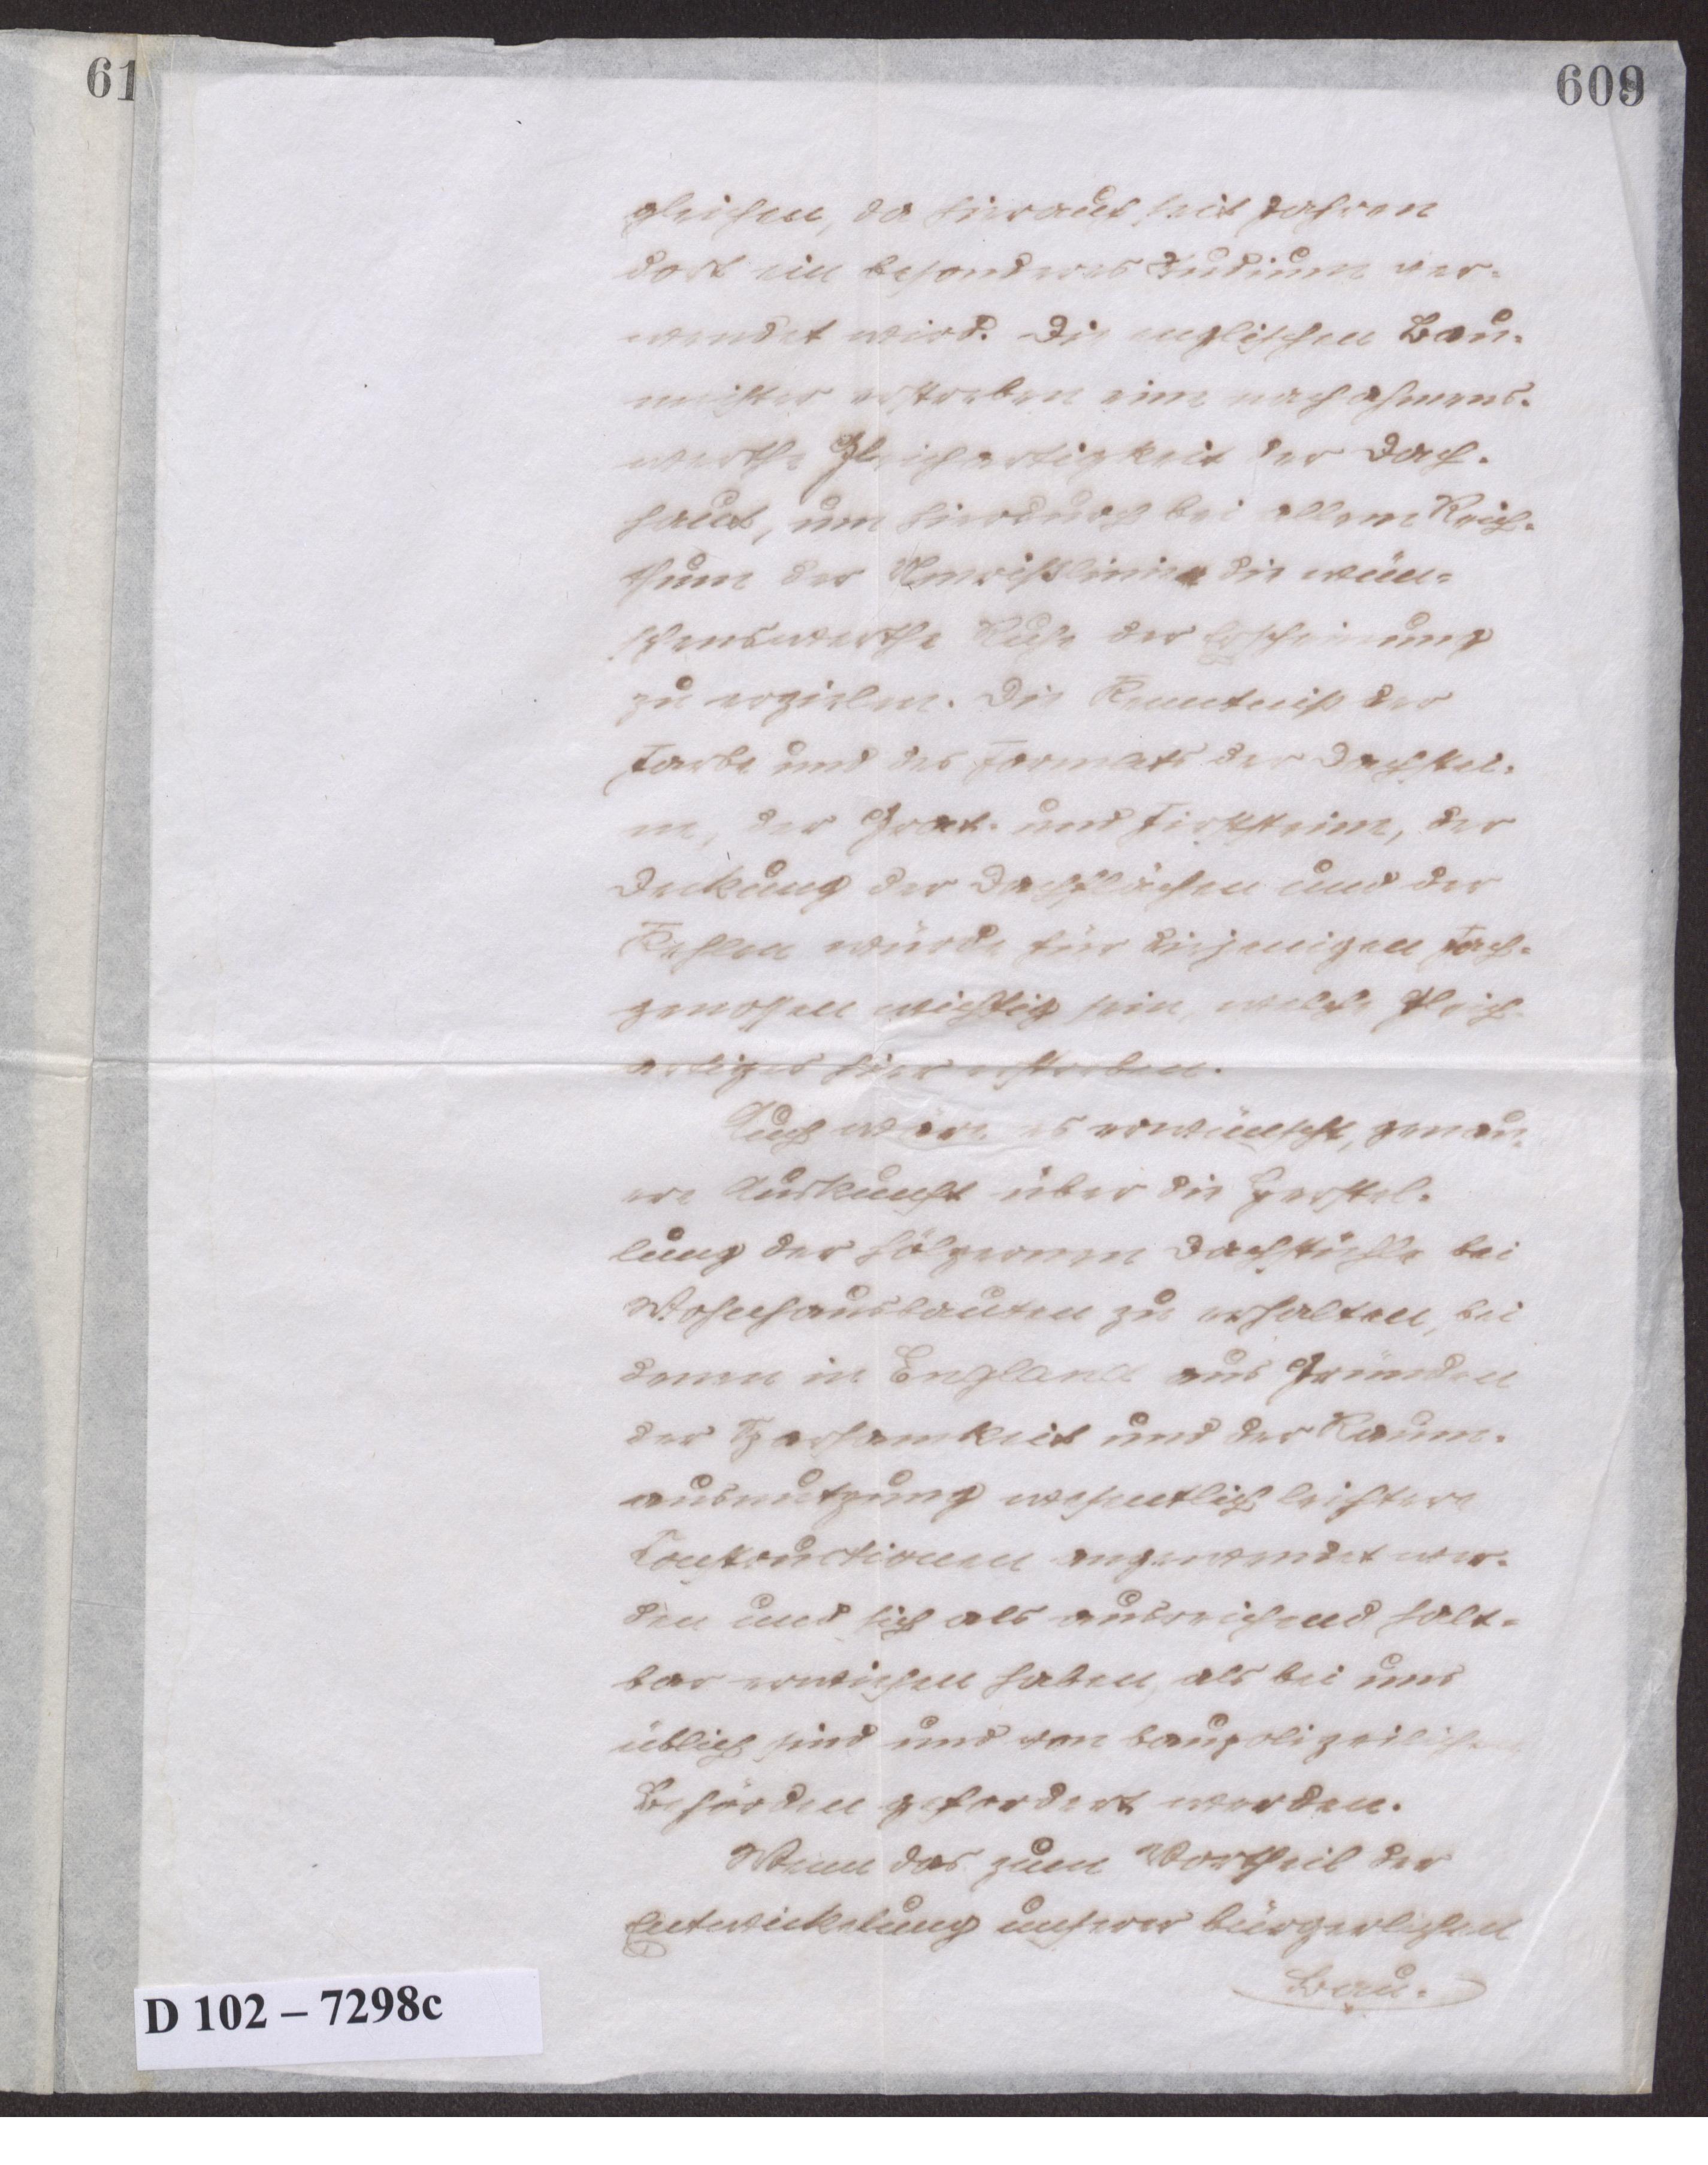 61
609
gleichen, da hierauf seit Jahren
dort ein besonderes Studium ver-
wendet wird. Die englischen Bau-
meister erstreben eine nachahmens-
werthe Gleichartigkeit der Dach-
haut, um hierdurch bei allem Reich-
thum der Umrißlinien die wün-
schenswerthe Ruhe der Erscheinung
zu erzielen. Die Kenntniß der
Farbe und des Formats der Dachstei-
ne, der Grat- und Firststeine, der
Deckung der Dachflächen und der
Kehlen würde für diejenigen Fach-
genossen wichtig sein, welche Gleich-
artiges hier erstreben.
Auch wäre es erwünscht, genau-
ere Auskunft über die Herstel-
lung der hölzernen Dachstühle bei
Wohnhausbauten zu erhalten, bei
denen in England aus Gründen
der Sparsamkeit und der Raum-
ausnutzung wesentlich leichtere
Constructionen angewendet wer-
den und sich als ausreichend halt-
bar erwiesen haben, als bei uns
üblich sind und von baupolizeilichen
Behörden gefordert werden.
Wenn das zum Vortheil der
Entwickelung unserer bürgerlichen
Bau-
D 102 – 7298c